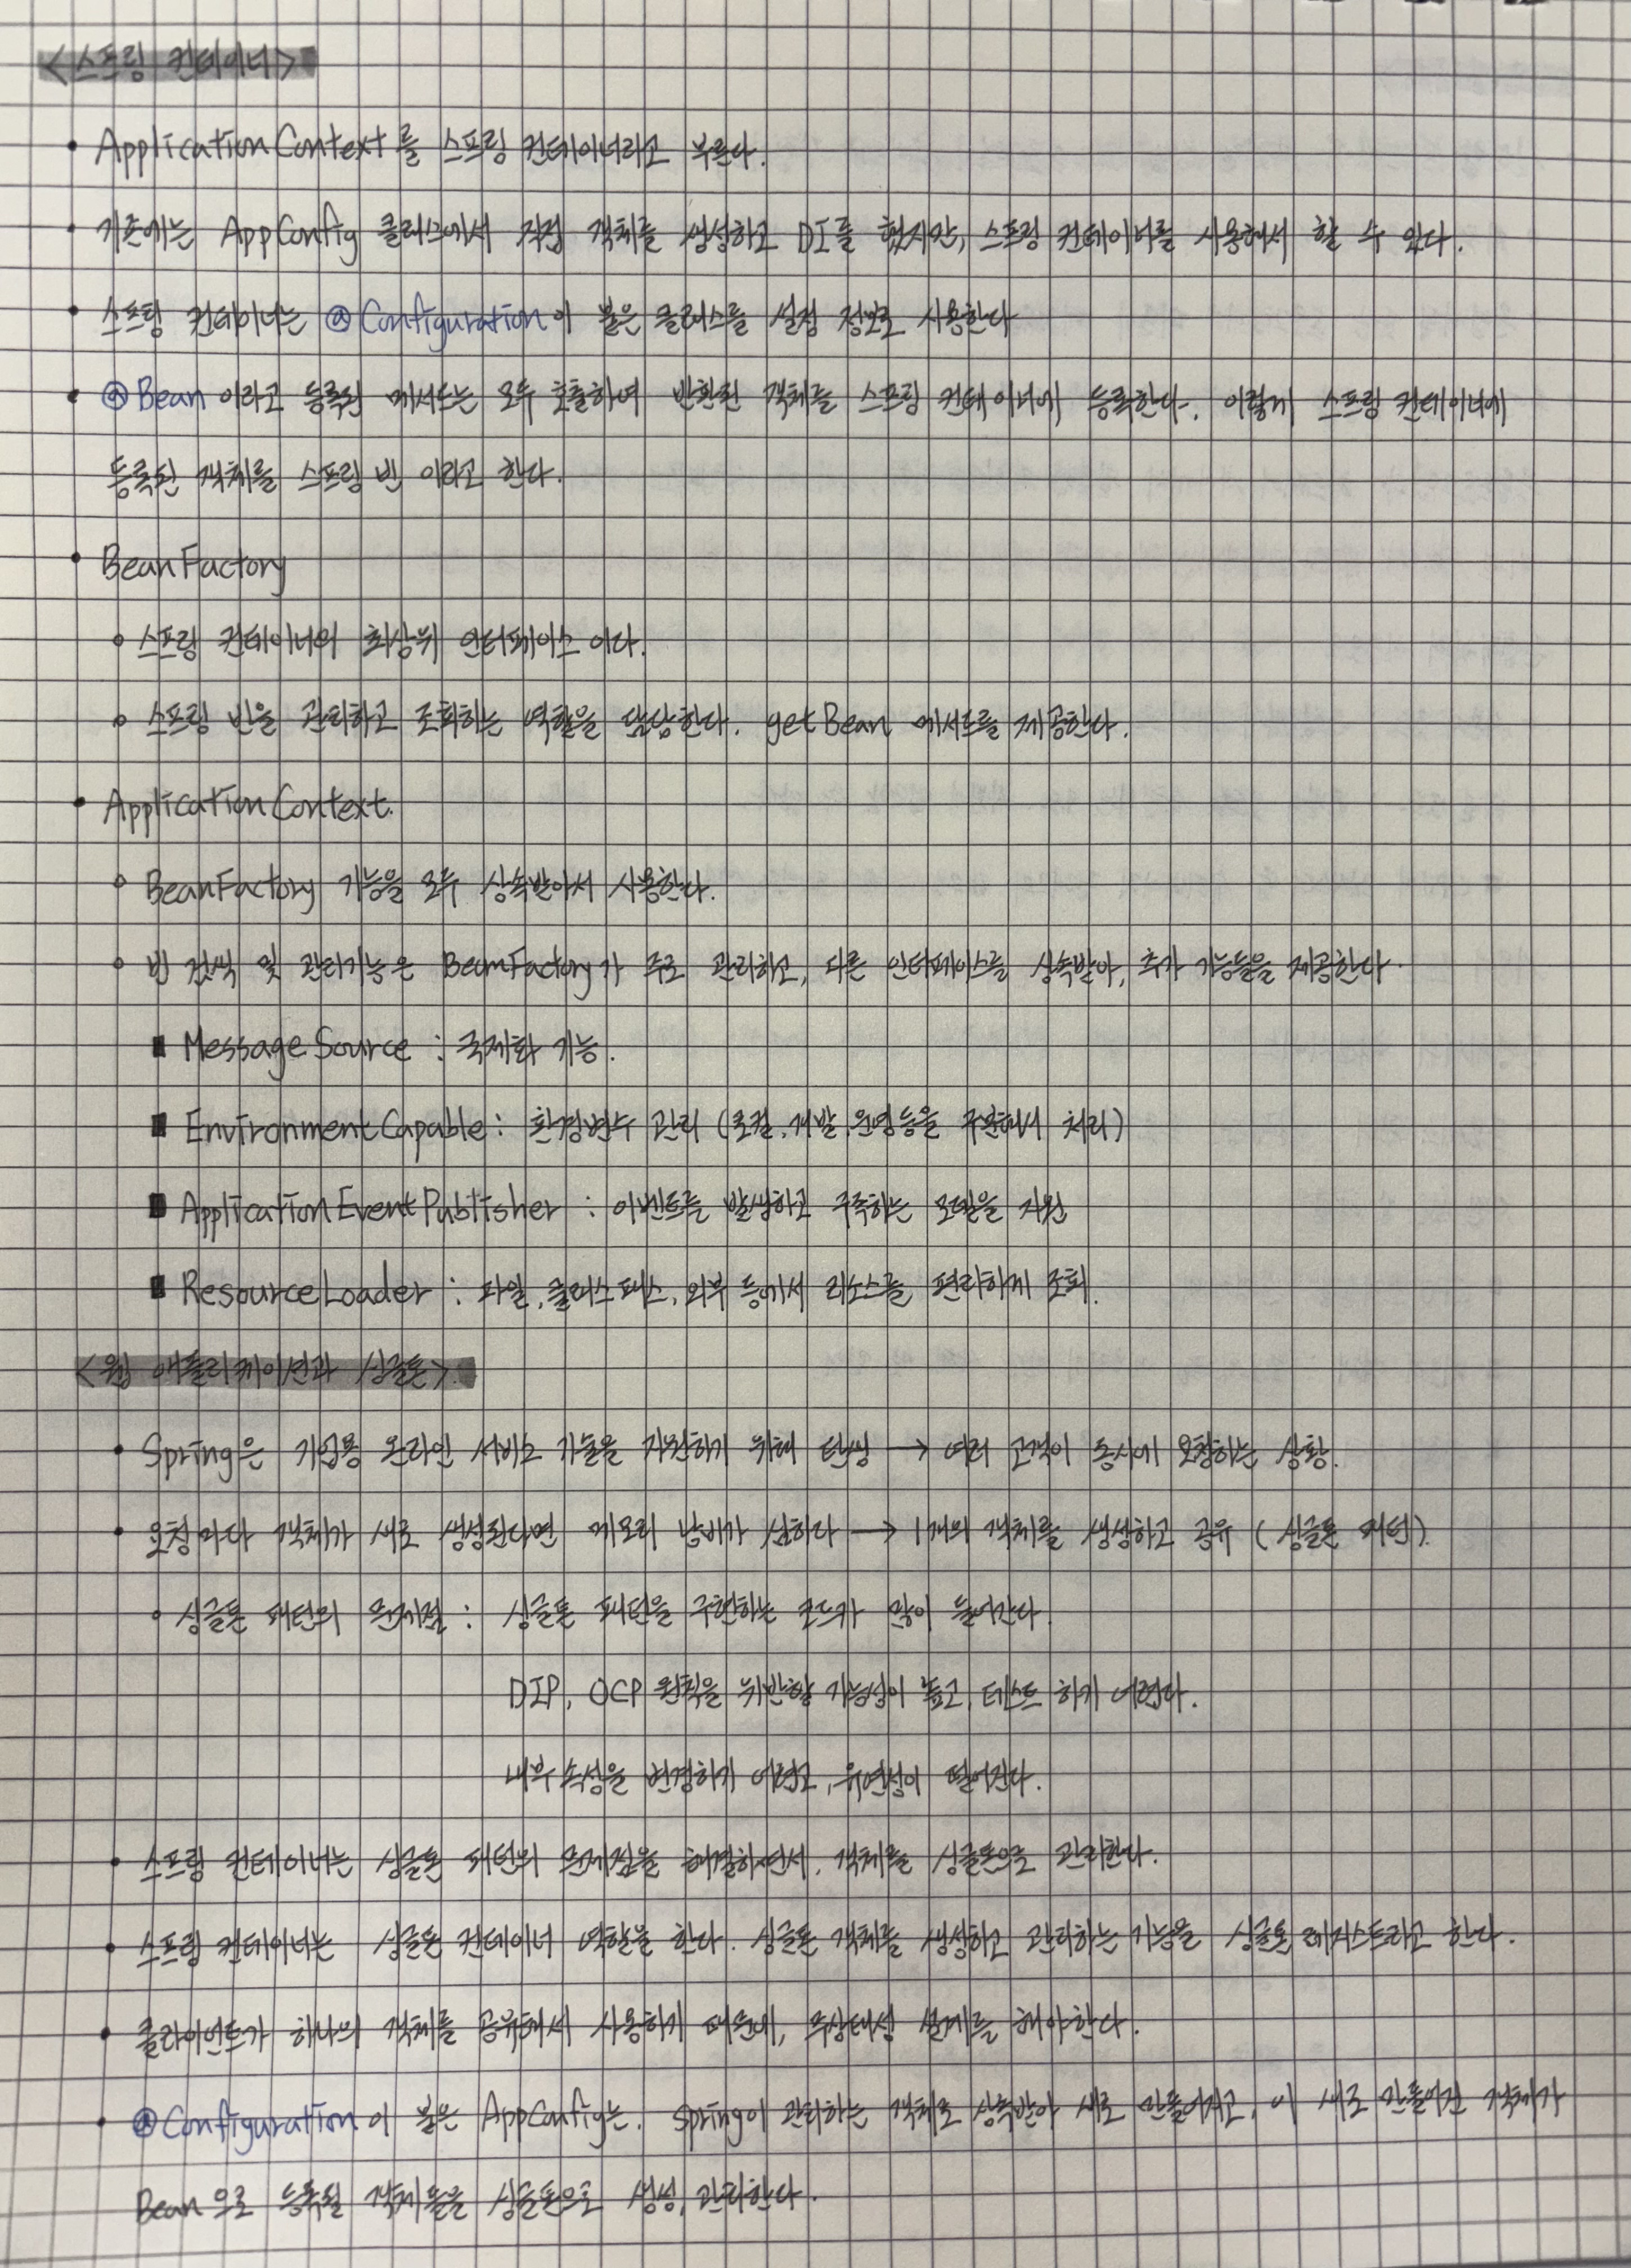 <스프링 컨테이너>
• ApplicationContext를 스프링 컨테이너라고 부른다.
• 기존에는 AppConfig 클래스에서 직접 객체를 생성하고 DI를 했지만, 스프링 컨테이너를 사용해서 할 수 있다.
• 스프링 컨테이너는 @Configuration이 붙은 클래스를 설정 정보로 사용한다
• @Bean 이라고 등록된 메서드는 모두 호출하여 반환된 객체를 스프링 컨테이너에 등록한다. 이렇게 스프링 컨테이너에
등록된 객체를 스프링 빈 이라고 한다.
• BeanFactory
∘ 스프링 컨테이너의 최상위 인터페이스 이다.
∘ 스프링 빈을 관리하고 조회하는 역할을 담당한다. getBean 메서드를 제공한다.
• ApplicationContext.
∘ BeanFactory 기능을 모두 상속받아서 사용한다.
∘ 빈 검색 및 관리기능은 BeanFactory가 주로 관리하고, 다른 인터페이스를 상속받아, 추가 기능들을 제공한다.
■ MessageSource : 국제화 기능.
■ EnvironmentCapable : 환경변수 관리 (로컬, 개발, 운영 등을 구분해서 처리)
■ ApplicationEventPublisher : 이벤트를 발생하고 구독하는 모델을 지원
■ ResourceLoader : 파일, 클래스패스, 외부 등에서 리소스를 편리하게 조회.
<웹 애플리케이션과 싱글톤>.
• Spring은 기업용 온라인 서비스 기술을 지원하기 위해 탄생 → 여러 고객이 동시에 요청하는 상황.
• 요청마다 객체가 새로 생성된다면 메모리 낭비가 심하다 → 1개의 객체를 생성하고 공유 (싱글톤 패턴).
∘ 싱글톤 패턴의 문제점 : 싱글톤 패턴을 구현하는 코드가 많이 들어간다.
DIP, OCP 원칙을 위반할 가능성이 높고, 테스트 하기 어렵다.
내부 속성을 변경하기 어렵고, 유연성이 떨어진다.
• 스프링 컨테이너는 싱글톤 패턴의 문제점을 해결하면서, 객체를 싱글톤으로 관리한다.
• 스프링 컨테이너는 싱글톤 컨테이너 역할을 한다. 싱글톤 객체를 생성하고 관리하는 기능을 싱글톤 레지스트리라고 한다.
• 클라이언트가 하나의 객체를 공유해서 사용하기 때문에, 무상태성 설계를 해야한다.
• @Configuration이 붙은 AppConfig는, Spring이 관리하는 객체로 상속받아 새로 만들어지고, 이 새로 만들어진 객체가
Bean으로 등록될 객체들을 싱글톤으로 생성, 관리한다.